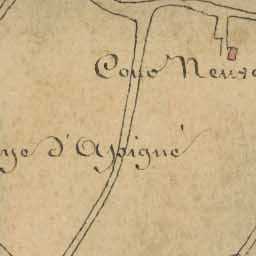 Cour Neuve
ye d'Apigné